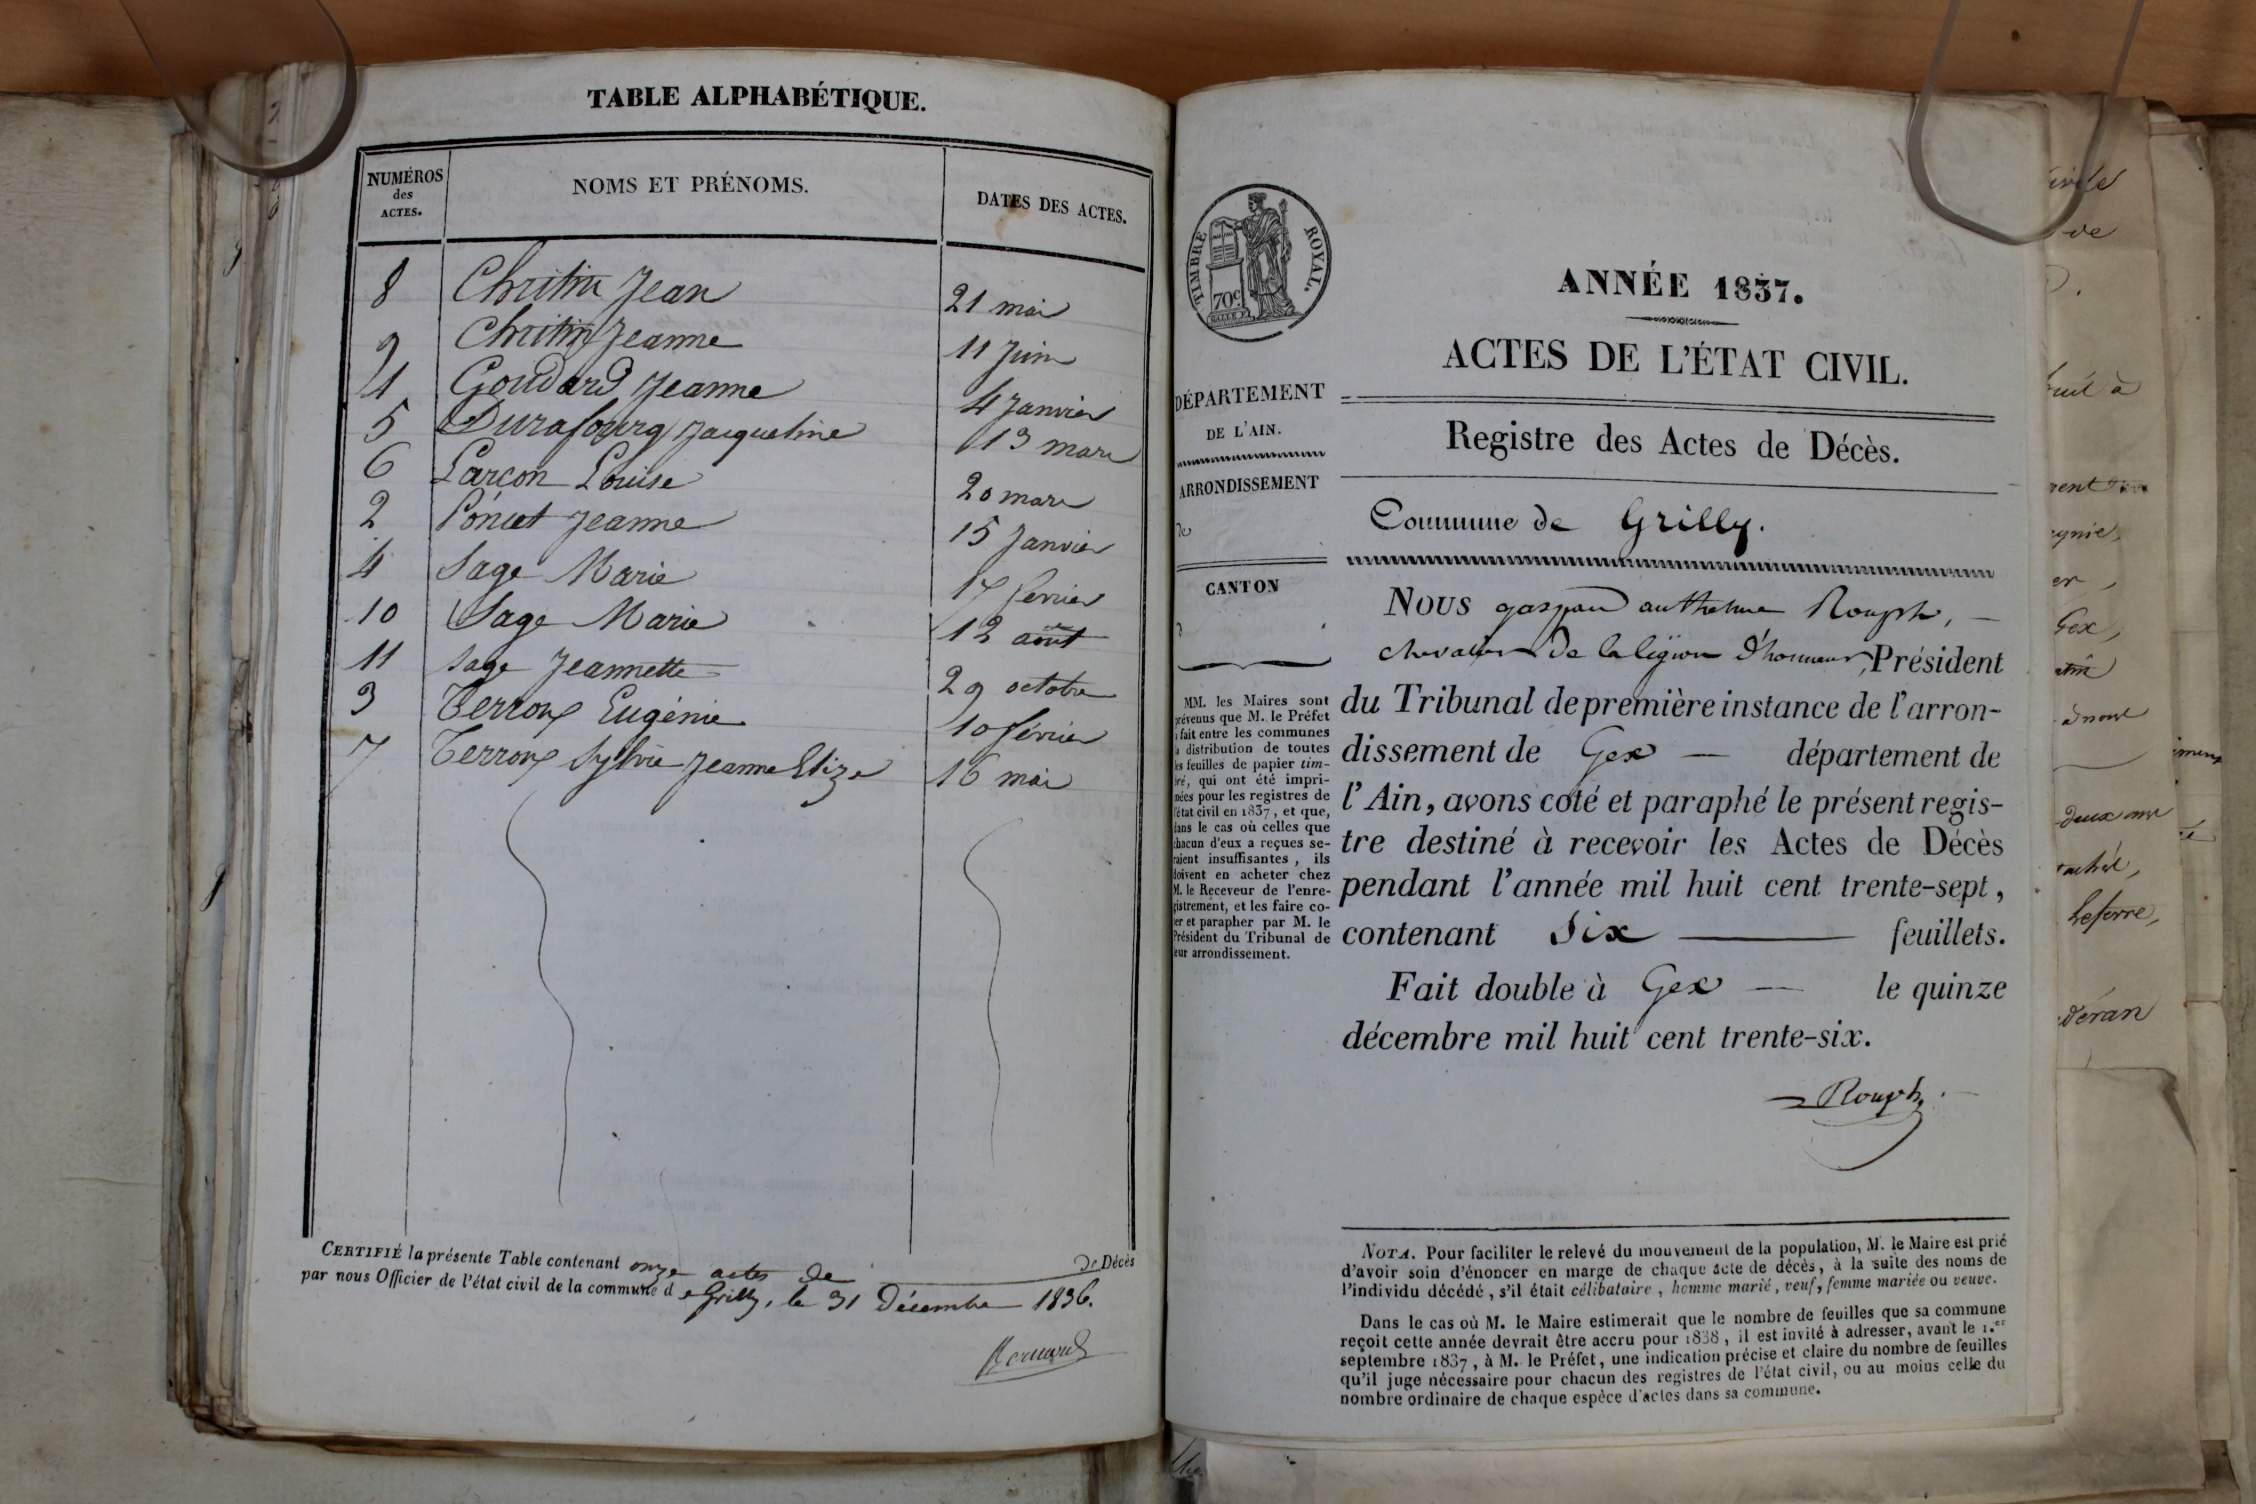 TABLE ALPHABÉTIQUE.
NUMÉROS des ACTES. NOMS ET PRÉNOMS. DATES DES ACTES.
8 Christin Jean 21 mai
9 Christin Jeanne 11 Juin
1 Goudard Jeanne 4 Janvier
5 Durafourg Jacqueline 13 mars
6 Larcon Louise 20 mars
2 Poncet Jeanne 15 Janvier
4 Sage Marie 17 fevrier
10 Sage Marie 12 août
11 Sage Jeannette 29 octobre
3 Terroux Eugénie 10 février
7 Terroux Sylvie Jeanne Elize 16 mai
CERTIFIÉ la présente Table contenant onze actes de de Décès
par nous Officier de l'état civil de la commune de Grilly, le 31 Décembre 1836.
Bernard
TIMBRE ROYAL.
70c
ANNÉE 1837.
ACTES DE L'ÉTAT CIVIL.
Registre des Actes de Décès.
Commune de Grilly.
DÉPARTEMENT
DE L'AIN.
ARRONDISSEMENT
de
CANTON
d
MM. les Maires sont
prévenus que M. le Préfet
a fait entre les communes
la distribution de toutes
les feuilles de papier tim-
bré, qui ont été impri-
mées pour les registres de
l'état civil en 1837, et que,
dans le cas où celles que
chacun d'eux a reçues se-
raient insuffisantes, ils
doivent en acheter chez
M. le Receveur de l'enre-
gistrement, et les faire co-
ter et parapher par M. le
Président du Tribunal de
leur arrondissement.
NOUS gaspard anthelme Rouph,
chevalier de la légion d'honneur, Président
du Tribunal de première instance de l'arron-
dissement de Gex — département de
l'Ain, avons coté et paraphé le présent regis-
tre destiné à recevoir les Actes de Décès
pendant l'année mil huit cent trente-sept,
contenant Six feuillets.
Fait double à Gex — le quinze
décembre mil huit cent trente-six.
Rouph
NOTA. Pour faciliter le relevé du mouvement de la population, M. le Maire est prié
d'avoir soin d'énoncer en marge de chaque acte de décès, à la suite des noms de
l'individu décédé, s'il était célibataire, homme marié, veuf, femme mariée ou veuve.
Dans le cas où M. le Maire estimerait que le nombre de feuilles que sa commune
reçoit cette année devrait être accru pour 1838, il est invité à adresser, avant le 1.er
septembre 1837, à M. le Préfet, une indication précise et claire du nombre de feuilles
qu'il juge nécessaire pour chacun des registres de l'état civil, ou au moins celle du
nombre ordinaire de chaque espèce d'actes dans sa commune.
de
Gex,
deux